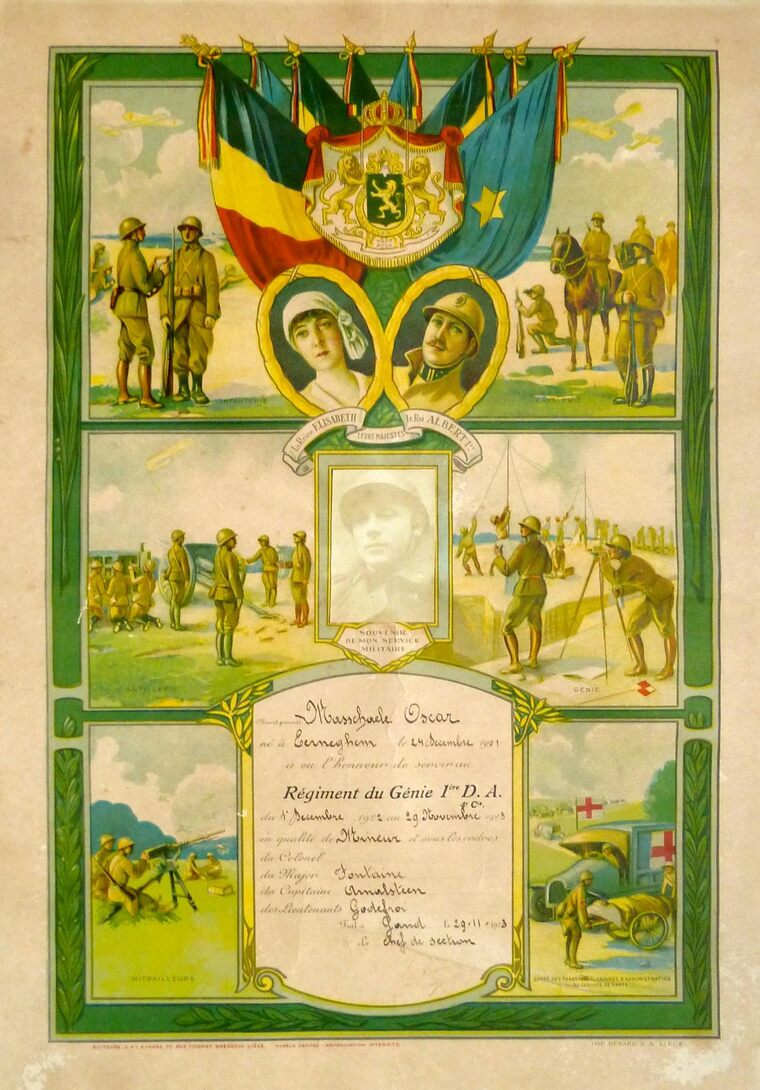 INFANTERIE
CAVALERIE
La Reine ELISABETH
LEURS MAJESTÉS
le Roi ALBERT Ier
SOUVENIR
DE MON SERVICE
MILITAIRE
ARTILLERIE
GÉNIE
(Nom et prénoms) Masschaele Oscar
né à Eerneghem le 24 Decembre 1901
a eu l'honneur de servir au
Régiment du Génie 1ère D. A.
Cie.
du 1r Decembre 1922 au 29 Novembre 1923
en qualité de Mineur et sous les ordres
du Colonel
du Major Fontaine
du Capitaine Amalsteen
des Lieutenants Godefroi
Fait à Gand le 29-11-1923
Le Chef de section
MITRAILLEURS
CORPS DES TRANSPORTS, TROUPES D'ADMINISTRATION
DU SERVICE DE SANTÉ
MODÈLE DÉPOSÉ - REPRODUCTION INTERDITE
IMP. BÉNARD S. A. LIÈGE